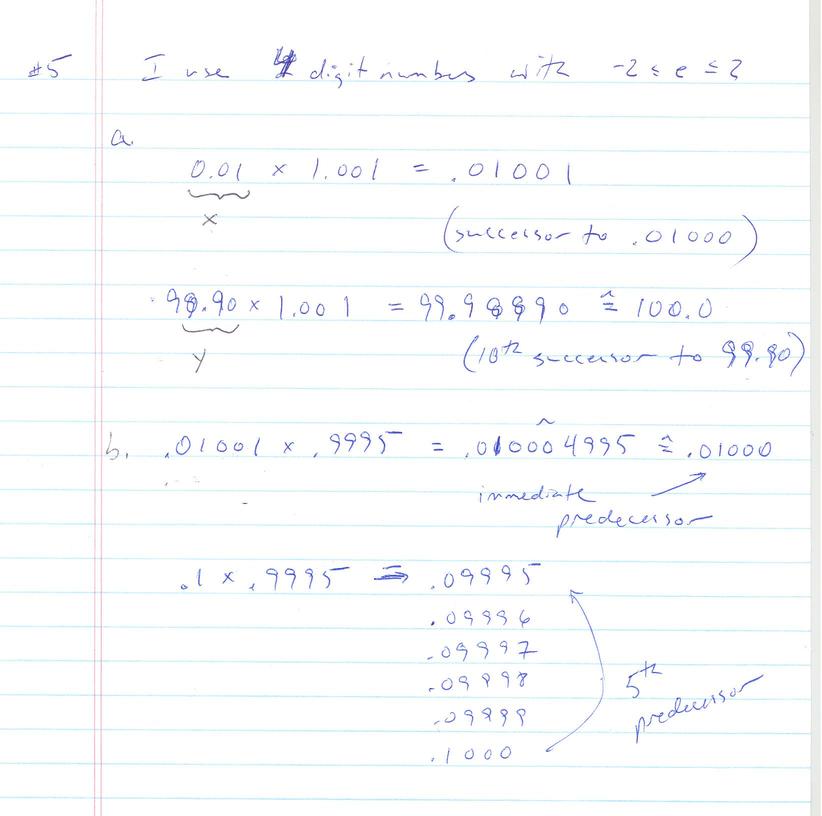 #5 I use 4 digit numbers with -2 ≤ e ≤ 2
a.
0.01 × 1.001 = .01001
x
(successor to .01000)
99.90 × 1.001 = 99.99990 ≙ 100.0
y
(10th successor to 99.90)
b. .01001 × .9995 = .010004995 ≙ .01000
immediate
predecessor
.1 × .9995 = .09995
.09996
.09997
.09998
.09999
.1000
5th
predecessor